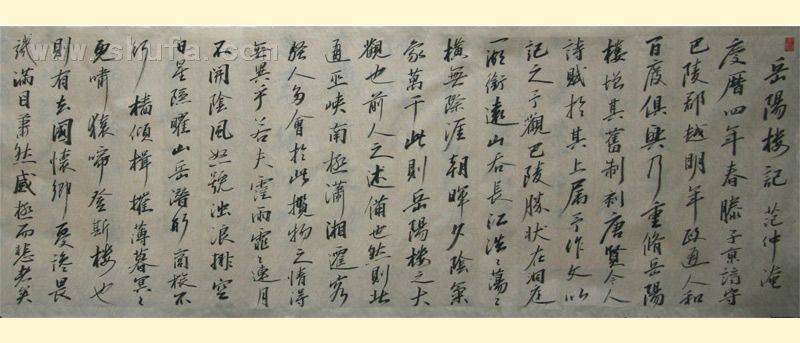 岳陽樓記 范仲淹
慶曆四年春滕子京謫守
巴陵郡越明年政通人和
百廢俱興乃重脩岳陽
樓增其舊制刻唐賢今人
詩賦於其上屬予作文以
記之予觀巴陵勝狀在洞庭
一湖銜遠山吞長江浩〻蕩〻
橫無際涯朝暉夕陰氣
象萬千此則岳陽樓之大
觀也前人之述備也然則北
通巫峽南極瀟湘遷客
騷人多會於此攬物之情得
無異乎若夫霪雨霏〻連月
不開陰風怒號濁浪排空
日星隱曜山岳潛形商旅不
行檣傾楫摧薄暮冥〻
虎嘯猿啼登斯樓也
則有去國懷鄉憂讒畏
譏滿目蕭然感極而悲者矣
www.shufa.com